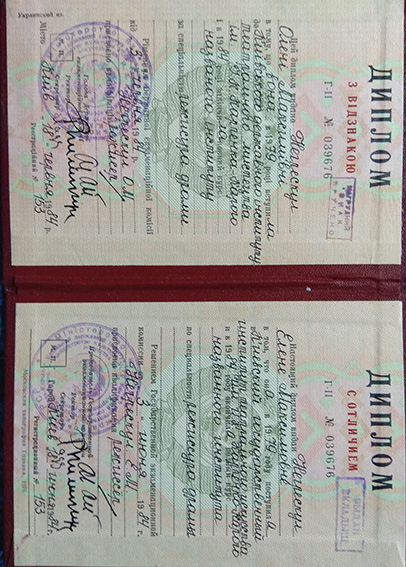 Український яз.
ДИПЛОМ
З ВІДЗНАКОЮ
Г-ІІ № 039676
Цей диплом видано Негрескул
Олені
в тому, що вона в 1979 році вступила
до Київського державного інституту
театрального мистецтва
ім. І. К. Карпенка-Карого
і в 1984 році закінчила повний курс
названого інституту
за спеціальністю режисура драми
Рішенням Державної екзаменаційної комісії
від 3 червня 1984 р.
Негрескул О. М.
присвоєно кваліфікацію режисер
М. п.
Голова Державної
Ректор
Секретар
Місто Київ 18 червня 1984 р.
Реєстраційний № 153
ДИПЛОМ
С ОТЛИЧИЕМ
Г-ІІ № 039676
ВЫДАН
ВКЛАДЫШ
Настоящий диплом выдан Негрескул
Елене Максимовне
в том, что она в 1979 году поступила
в Киевский государственный
институт театрального искусства
и в 1984 году окончила полный курс
названного института
по специальности режиссура драмы
Решением Государственной экзаменационной
комиссии от 3 июня 1984 г.
Негрескул Е. М.
присвоена квалификация режиссёр
М. п.
Ректор
Секретарь
Город Киев 18 июня 1984 г.
Регистрационный № 153
Московская типография Гознака. 1978.